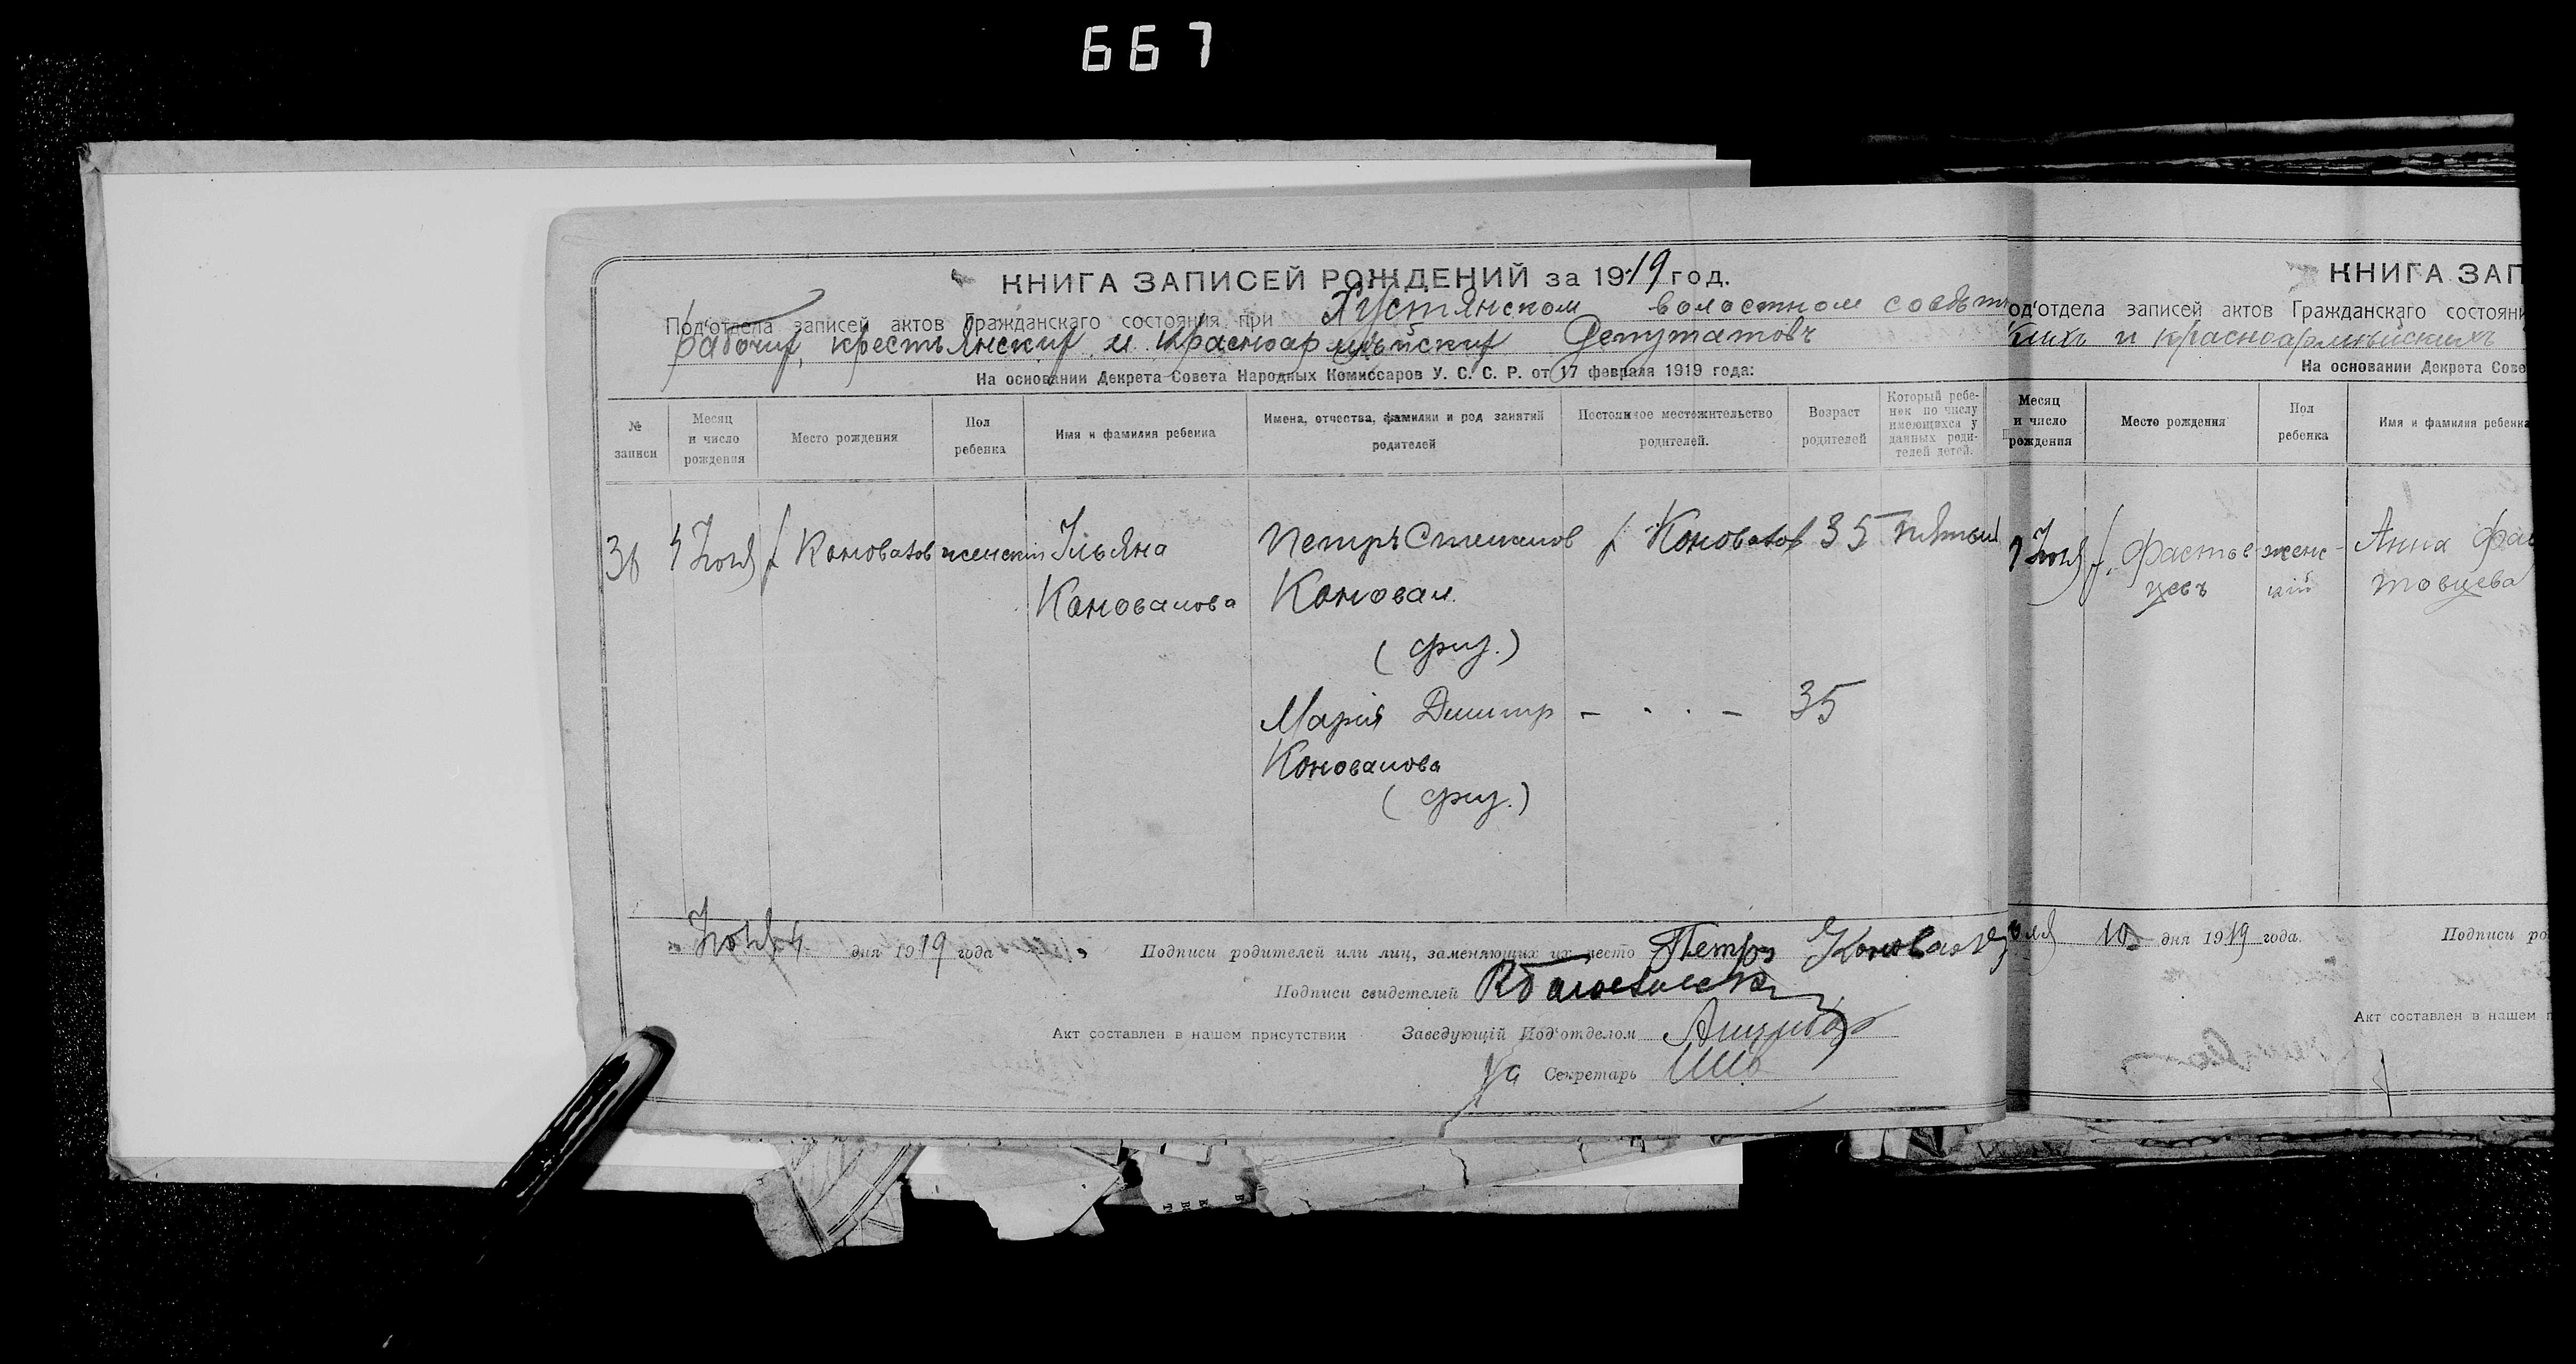 667
КНИГА ЗАПИСЕЙ РОЖДЕНИЙ за 1919 год.
Под'отдела записей актов Гражданскаго состояния при Хустянском волостном совѣт
рабочих, крестьянских и Красноармѣйских Депутатовъ
На основании Декрета Совета Народных Комиссаров У. С. С. Р. от 17 февраля 1919 года:
№ записи
Месяц и число рождения
Место рождения
Пол ребенка
Имя и фамилия ребенка
Имена, отчества, фамилии и род занятий родителей
Постоянное местожительство родителей.
Возраст родителей
Который ребенок по числу имеющихся у данных родителей детей.
36 4 Іюня х Коновалов женскій Ульяна Петръ Степанов х Коновалов 35 пятый
Коновалова Коновал.
(физ.)
Марія Димитр - . . - 35
Коновалова
(физ.)
Іюня 4 дня 1919 года Подписи родителей или лиц, заменяющих их место Петро Коновал
Подписи свидетелей
Акт составлен в нашем присутствии Заведующій Под'отделом
За Секретарь
КНИГА ЗАП
од'отдела записей актов Гражданскаго состояни
ских и красноармѣйскихъ
На основании Декрета Сове
Месяц и число рождения
Место рождения
Пол ребенка
Имя и фамилия ребенка
х. Фастов- женс- Анна Фас
цевъ кій товцева
10 дня 1919 года. Подписи ро
Акт составлен в нашем п